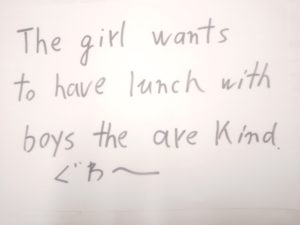 The girl wants
to have lunch with
boys the are Kind.
ぐわ〜